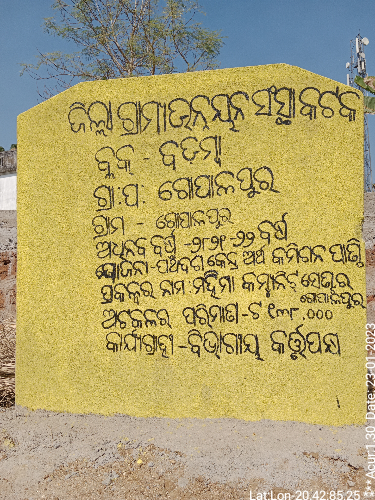 ଜିଲ୍ଲା ଗ୍ରାମ୍ୟ ଉନ୍ନୟନ ସଂସ୍ଥା କଟକ
ବ୍ଲକ - ବଡମ୍ବା
ଗ୍ରା.ପ. ଗୋପାଳପୁର
ଗ୍ରାମ - ଗୋପାଳପୁର
ଆର୍ଥିକ ବର୍ଷ -୨୦୨୧-୨୨ ବର୍ଷ
ଯୋଜନା-ପଞ୍ଚଦଶ କେନ୍ଦ୍ର ଅର୍ଥ କମିଶନ ପାଣ୍ଠି
ପ୍ରକଳ୍ପର ନାମ ମହିମା କମ୍ୟୁନିଟି ସେଣ୍ଟର
ଗୋପାଳପୁର
ଅଟକଳର ପରିମାଣ-ଟ
କାର୍ଯ୍ୟଗ୍ରାହୀ -ବିଭାଗୀୟ କର୍ତ୍ତୃପକ୍ଷ
Date: 23-01-2023
Lat:Lon-20.42:85.25